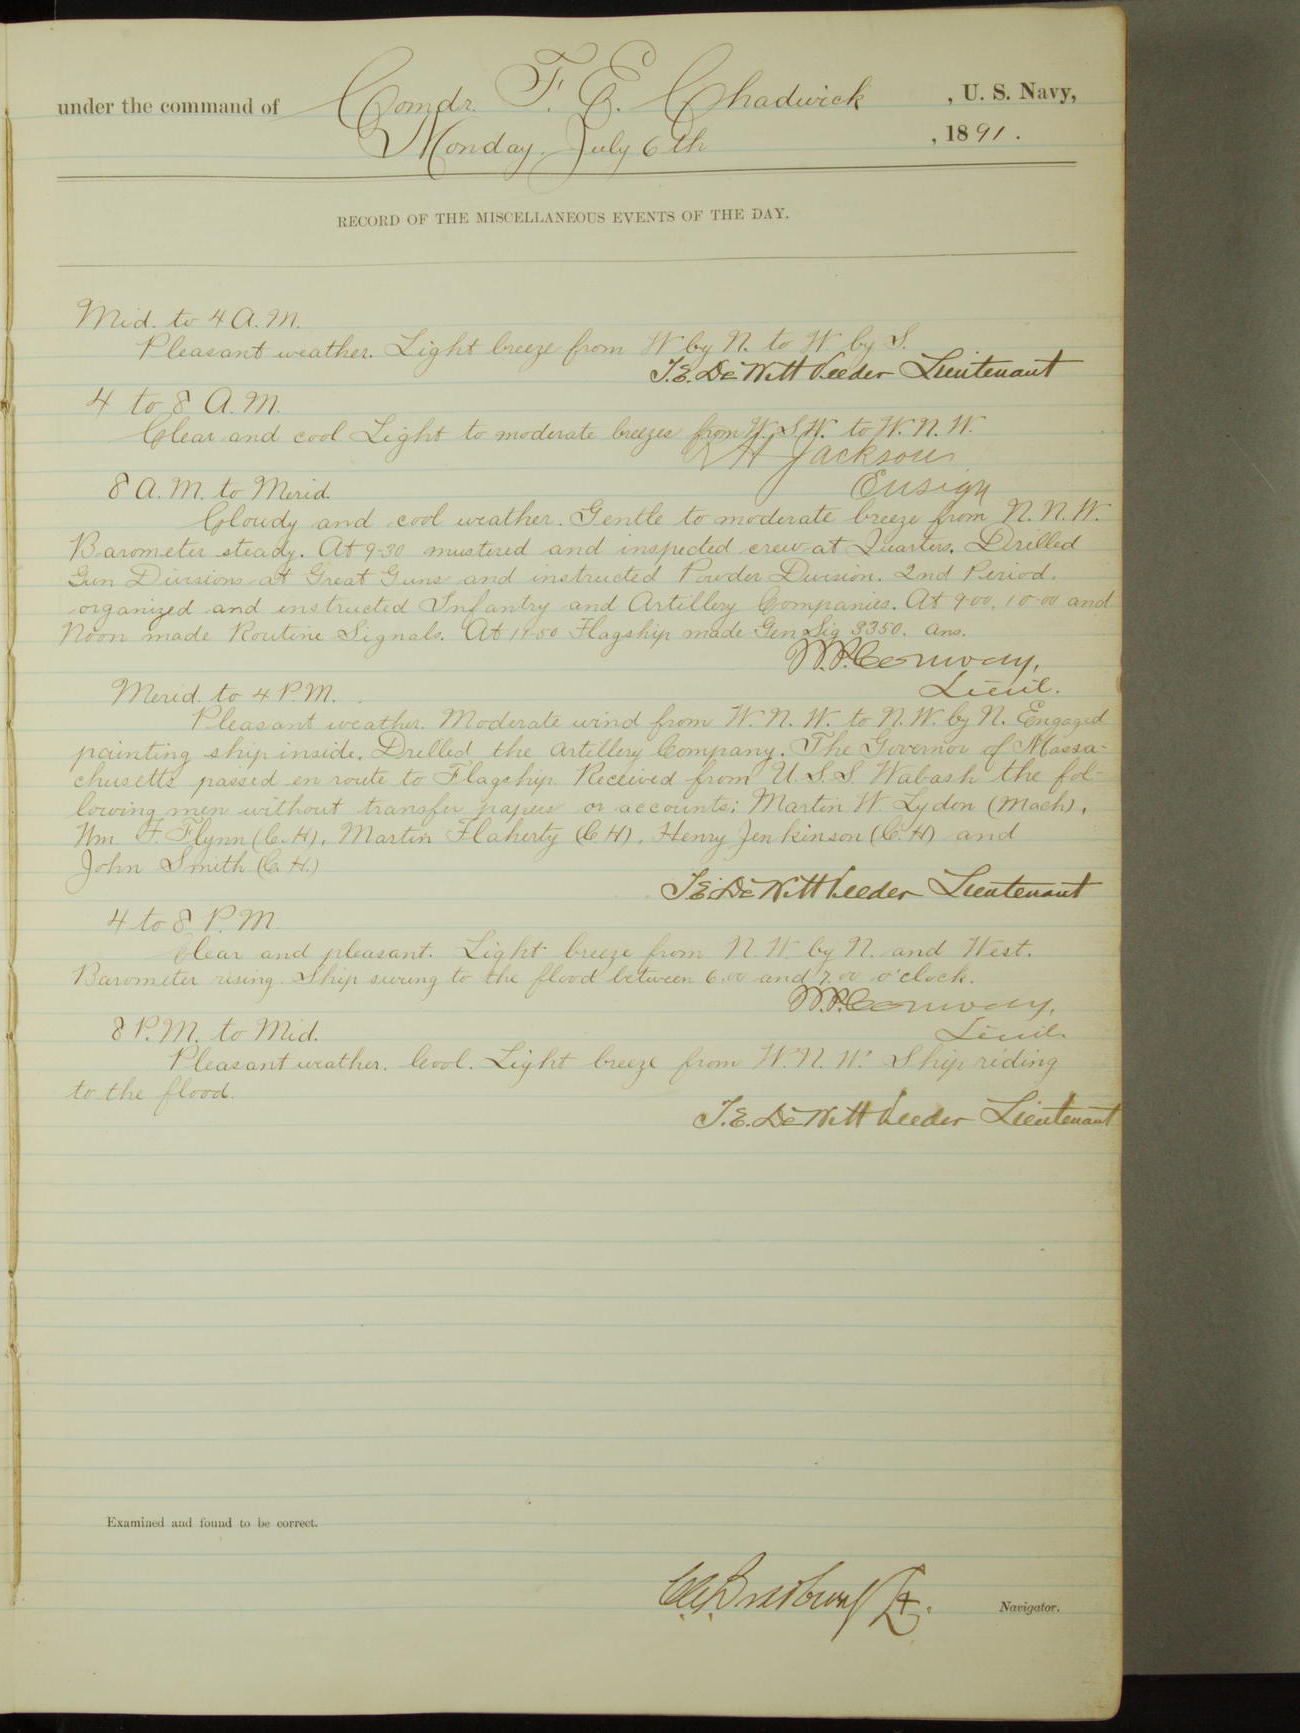 under the command of Comdr. F. E. Chadwick , U. S. Navy,
Monday, July 6th , 1891.
RECORD OF THE MISCELLANEOUS EVENTS OF THE DAY.
Mid. to 4 A.M.
Pleasant weather. Light breeze from W by N. to W by S.
T.E. DeWitt Veeder Lieutenant
4 to 8 A.M.
Clear and cool Light to moderate breezes from W.S.W. to W.N.W.
R H Jackson
Ensign
8 A.M. to Merid.
Cloudy and cool weather. Gentle to moderate breeze from N.N.W.
Barometer steady. At 9-30 mustered and inspected crew at Quarters. Drilled
Gun Divisions at Great Guns and instructed Powder Division. 2nd Period.
organized and instructed Infantry and Artillery Companies. At 9-00, 10-00 and
Noon made Routine Signals. At 11-50 Flagship made Gen Sig 3350. Ans.
W.P. Conway,
Lieut.
Merid. to 4 P.M.
Pleasant weather. Moderate wind from W.N.W. to N.W. by N. Engaged
painting ship inside. Drilled the Artillery Company. The Governor of Massa-
chusetts passed en route to Flagship. Received from U.S.S Wabash the fol-
lowing men without transfer papers or accounts: Martin W. Lydon (Mach),
Wm. F. Flynn (C.H), Martin Flaherty (C.H), Henry Jenkinson (C.H) and
John Smith (C.H.)
T.E. DeWitt Veeder Lieutenant
4 to 8 P.M.
Clear and pleasant. Light breeze from N.W. by N. and West.
Barometer rising. Ship swung to the flood between 6.00 and 7.00 o'clock.
W.P. Conway,
Lieut.
8 P.M. to Mid.
Pleasant weather. Cool. Light breeze from W.N.W. Ship riding
to the flood.
T.E. DeWitt Veeder Lieutenant
Examined and found to be correct.
Navigator.